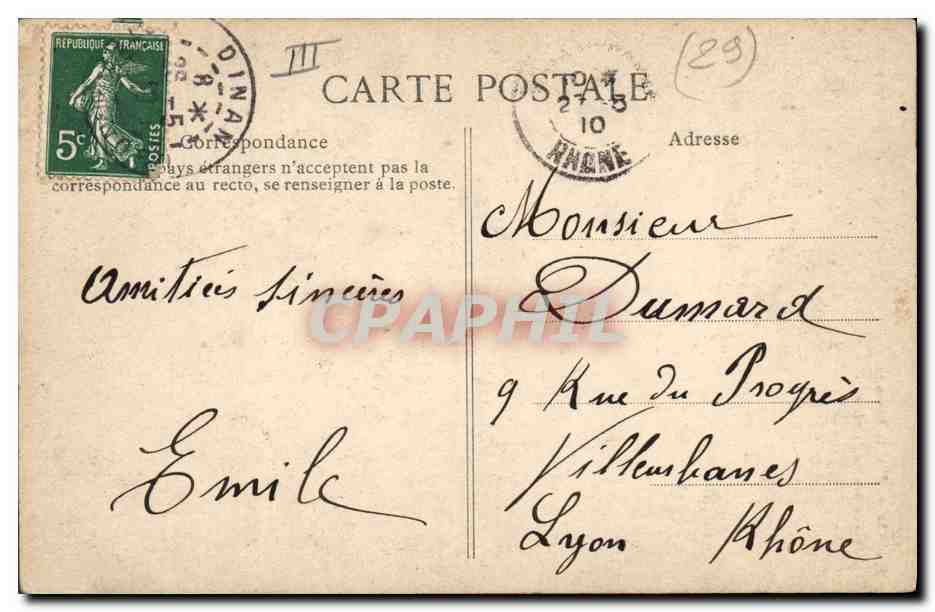 RÉPUBLIQUE FRANÇAISE
5c
POSTES
DINAN
8 *
III
(29)
CARTE POSTALE
27 - 5
10
RHONE
Correspondance
Adresse
pays étrangers n'acceptent pas la
correspondance au recto, se renseigner à la poste.
Monsieur
Dumard
9 Rue du Progrès
Villeurbanes
Lyon Rhône
Amitiés sincères
Emile
CPAPHIL